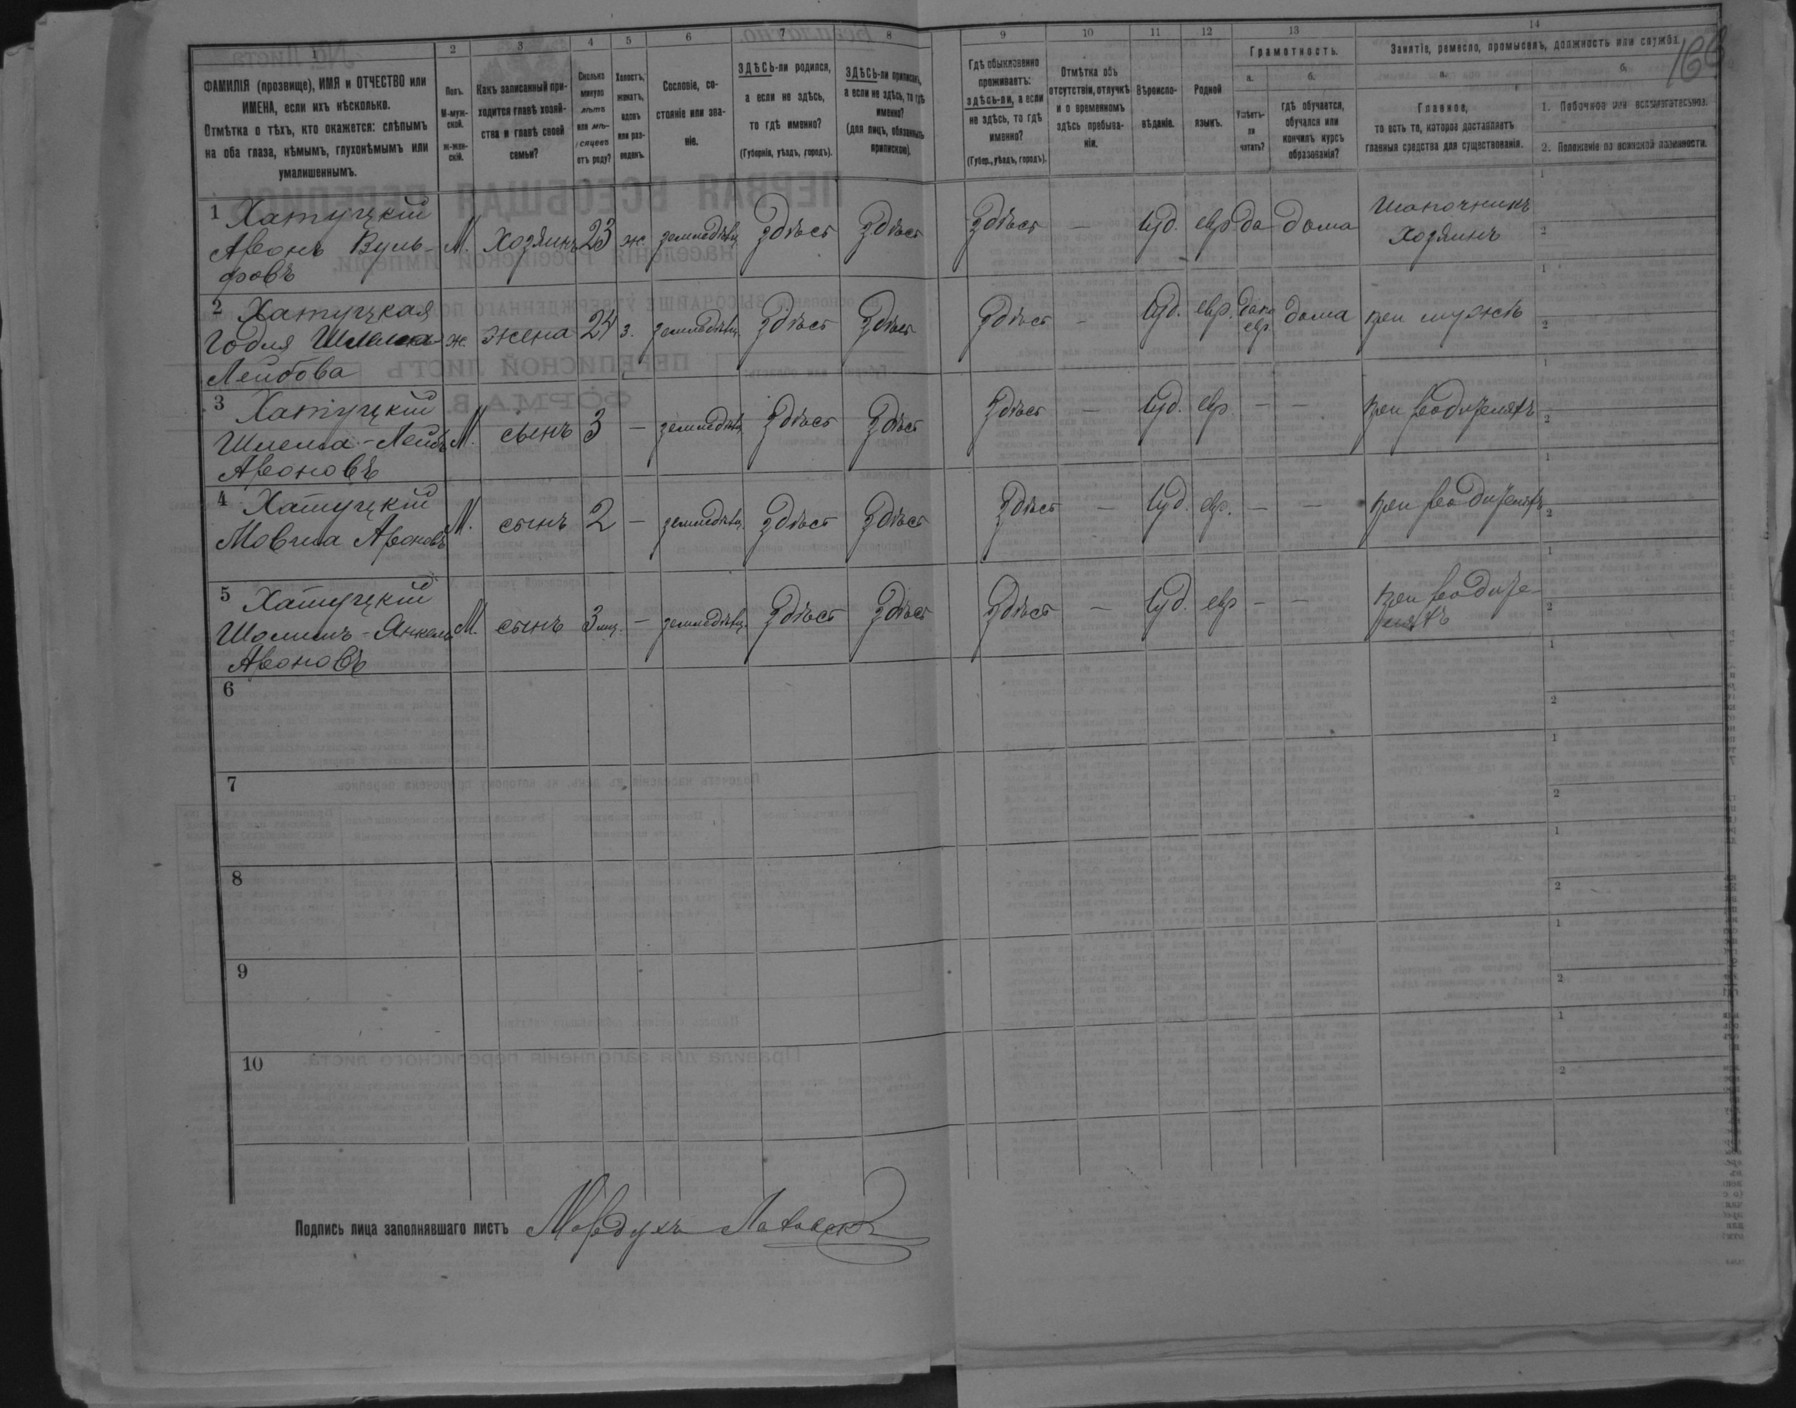 1 2 3 4 5 6 7 8 9 10 11 12 13 14
ФАМИЛІЯ (прозвище), ИМЯ и ОТЧЕСТВО или
ИМЕНА, если ихъ нѣсколько.
Отмѣтка о тѣхъ, кто окажется: слѣпымъ
на оба глаза, нѣмымъ, глухонѣмымъ или
умалишеннымъ.
Полъ.
М-муж-
ской.
Ж-жен-
скій.
Какъ записанный при-
ходится главѣ хозяй-
ства и главѣ своей
семьи?
Сколько
минуло
лѣтъ
или мѣ-
сяцевъ
отъ роду?
Холостъ,
женатъ,
вдовъ
или раз-
веденъ.
Сословіе, со-
стояніе или зва-
ніе.
ЗДѢСЬ-ли родился,
а если не здѣсь,
то гдѣ именно?
(Губернія, уѣздъ, городъ).
ЗДѢСЬ-ли приписанъ,
а если не здѣсь, то гдѣ
именно?
(для лицъ, обязанныхъ
припискою).
Гдѣ обыкновенно
проживаетъ:
здѣсь-ли, а если
не здѣсь, то гдѣ
именно?
(Губер., уѣздъ, городъ).
Отмѣтка объ
отсутствіи, отлучкѣ
и о временномъ
здѣсь пребыва-
ніи.
Вѣроиспо-
вѣданіе.
Родной
языкъ.
Грамотность.
а. б.
Умѣетъ-
ли
читать?
гдѣ обучается,
обучался или
кончилъ курсъ
образованія?
Занятіе, ремесло, промыселъ, должность или служба.
а. б.
Главное,
то есть то, которое доставляетъ
главныя средства для существованія.
1. Побочное или вспомогательное.
2. Положеніе по воинской повинности.
1 Хатуцкій
Аронъ Вуль-
фовъ
М. Хозяинъ 23 ж. земледѣлец здѣсь здѣсь здѣсь — Іуд. евр да дома Шапочникъ
хозяинъ
2 Хатуцкая
Годля
Лейбова
ж. жена 24 з. земледѣлец здѣсь здѣсь здѣсь — Іуд. евр. дома при мужѣ
3 Хатуцкій
Шлема-Лейб
Ароновъ
М. сынъ 3 — земледѣлец здѣсь здѣсь здѣсь — Іуд. евр — — при родителяхъ
4 Хатуцкій
Мовша Ароновъ
М. сынъ 2 — земледѣлец здѣсь здѣсь здѣсь — Іуд. евр. — — при родителяхъ
5 Хатуцкій
Шоломъ-Янкель
Ароновъ
М. сынъ 3 мц. — земледѣлец. здѣсь здѣсь здѣсь — Іуд. евр — — при родите-
ляхъ
6
7
8
9
10
Подпись лица заполнявшаго листъ Мордухъ